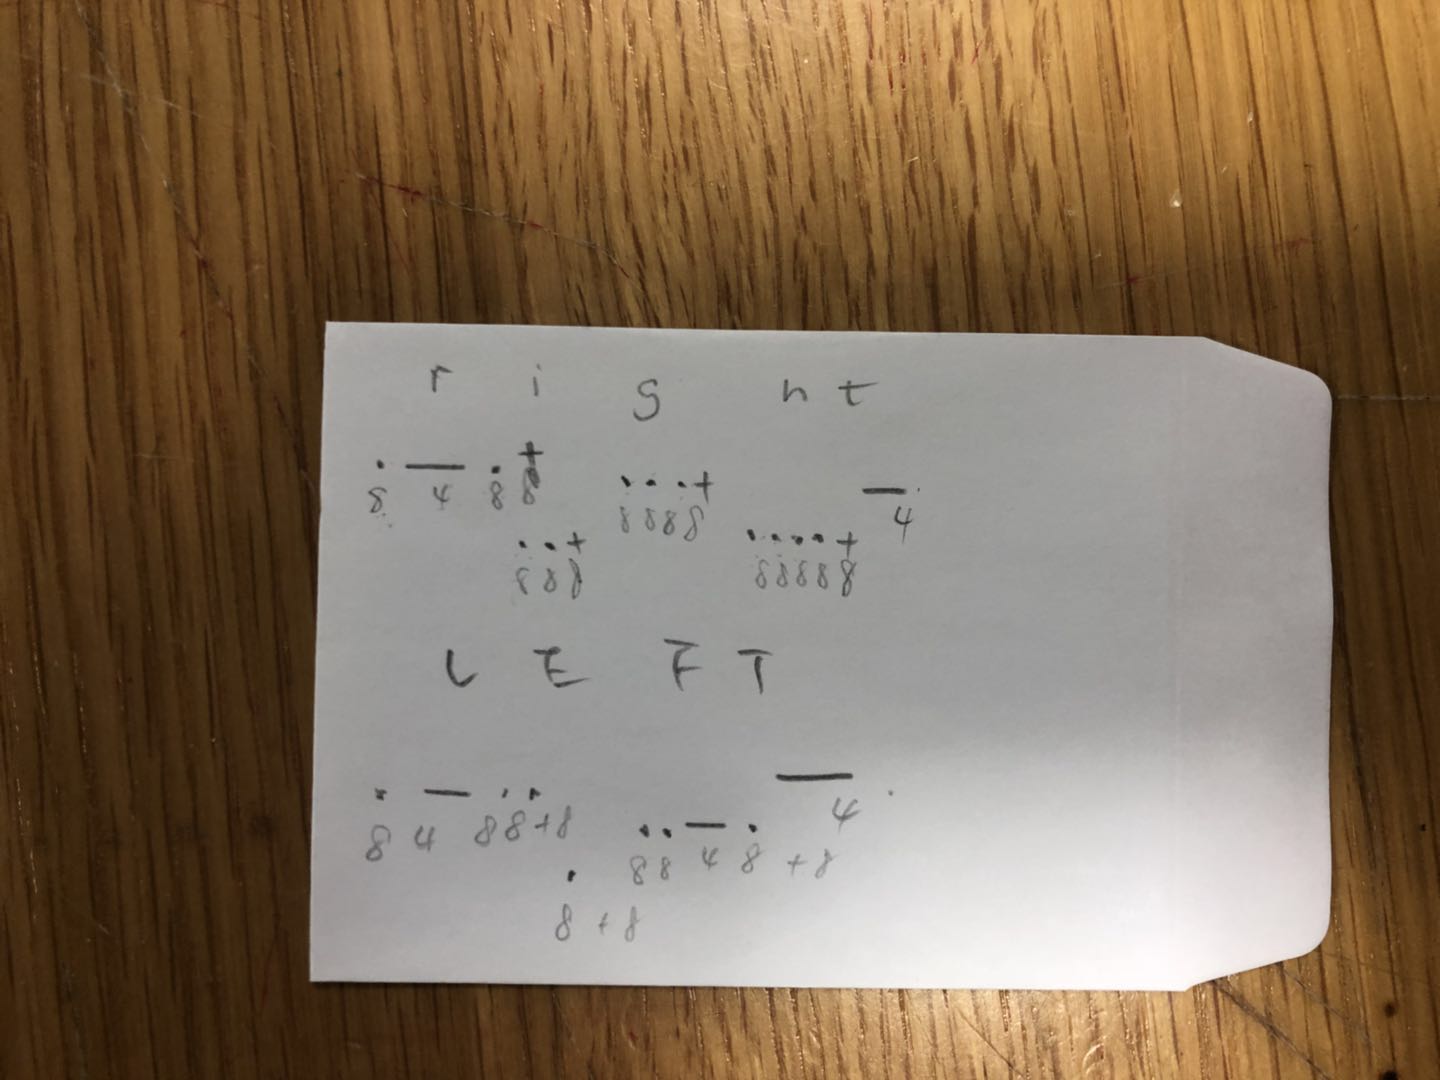 r i g h t
. — . + ... + —
8 4 8 8 8888 4
.. +  .... +
888 88888
L E F T
. — .. —
8 4 88+8 .. — . 4
. 88 4 8 +8
8+8